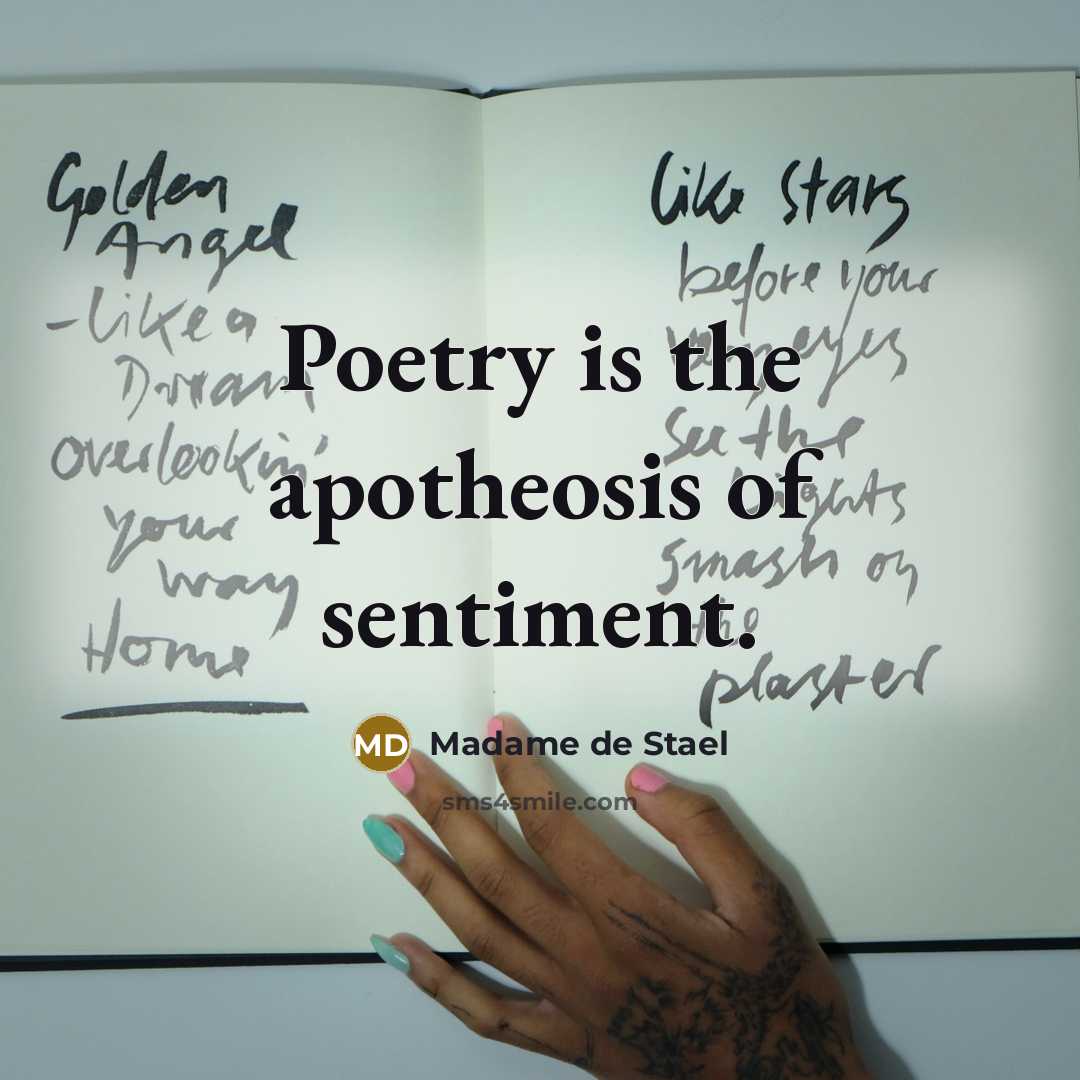 Golden
Angel
-like a
Dream
overlookin'
your
way
Home
like stars
before your
very eyes
See the
lights
smash on
the
plaster
Poetry is the
apotheosis of
sentiment.
MD Madame de Stael
sms4smile.com